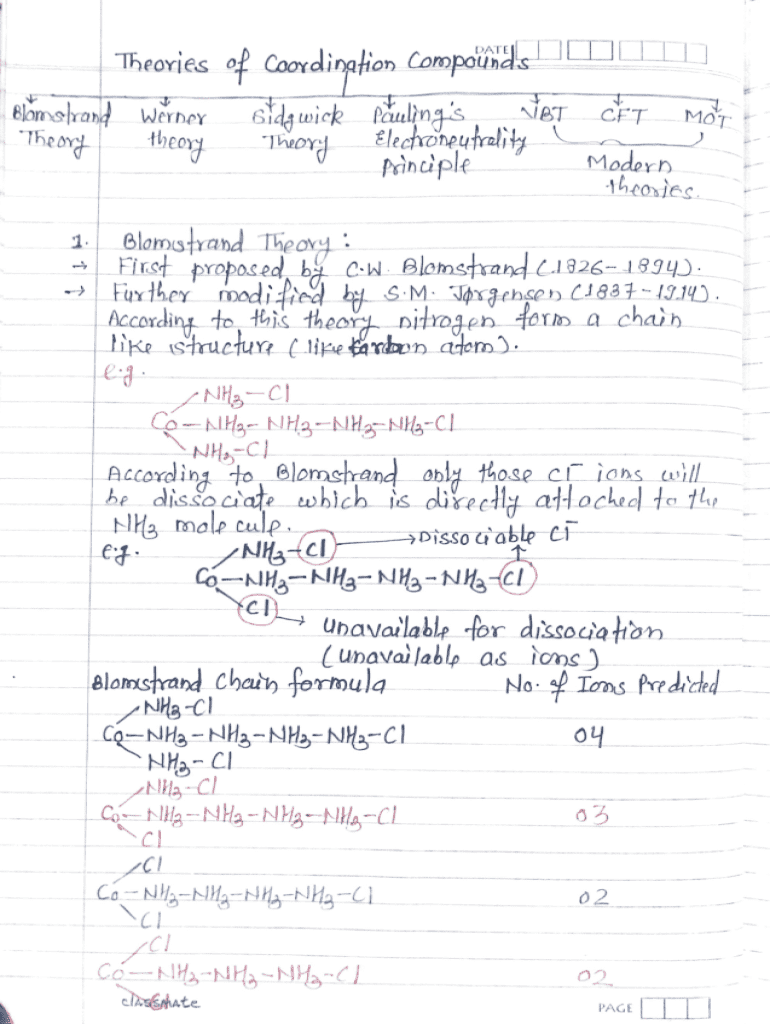 DATE
Theories of Coordination Compounds
Blomstrand Werner Sidgwick Pauling's VBT CFT MOT
Theory theory Theory Electroneutrality
Principle Modern
theories.
1. Blomstrand Theory :
→ First proposed by C.W. Blomstrand (1826-1894).
→ Further modified by S.M. Jørgensen (1837-1914).
According to this theory nitrogen form a chain
like structure (like carbon atom).
e.g.
NH3-Cl
Co-NH3-NH3-NH3-NH3-Cl
NH3-Cl
According to Blomstrand only those Cl- ions will
be dissociate which is directly attached to the
NH3 molecule.
e.g. NH3-Cl → Dissociable Cl-
Co-NH3-NH3-NH3-NH3-Cl
Cl → Unavailable for dissociation
(unavailable as ions)
Blomstrand Chain formula No. of Ions Predicted
NH3-Cl
Co-NH3-NH3-NH3-NH3-Cl 04
NH3-Cl
NH3-Cl
Co-NH3-NH3-NH3-NH3-Cl 03
Cl
Cl
Co-NH3-NH3-NH3-NH3-Cl 02
Cl
Cl
Co-NH3-NH3-NH3-Cl 02
Cl
classmate PAGE